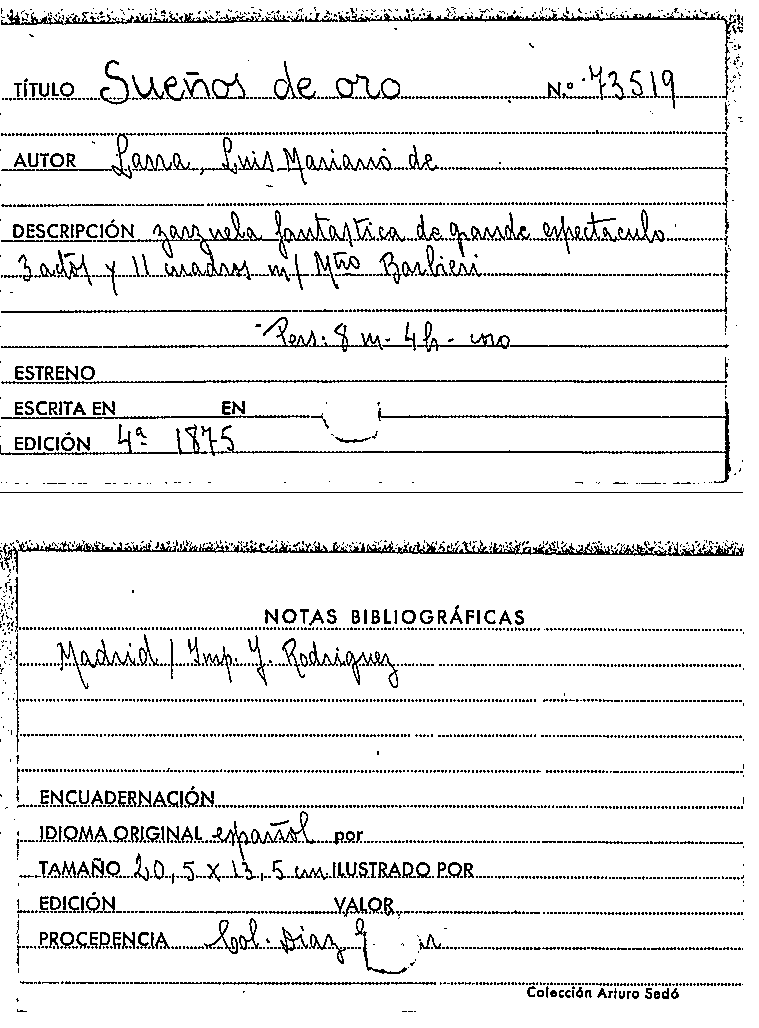 TÍTULO Sueños de oro N.º 73519
AUTOR Larra, Luis Mariano de
DESCRIPCIÓN zarzuela fantastica de grande espectaculo
3 actos y 11 cuadros m/ Mtro Barbieri
Pers: 8 m - 4 h - coro
ESTRENO
ESCRITA EN EN
EDICIÓN 4ª 1875
NOTAS BIBLIOGRÁFICAS
Madrid / Imp. J. Rodriguez
ENCUADERNACIÓN
IDIOMA ORIGINAL español por
TAMAÑO 20,5 x 13,5 cm ILUSTRADO POR
EDICIÓN VALOR
PROCEDENCIA Col. Diaz
Colección Arturo Sedó